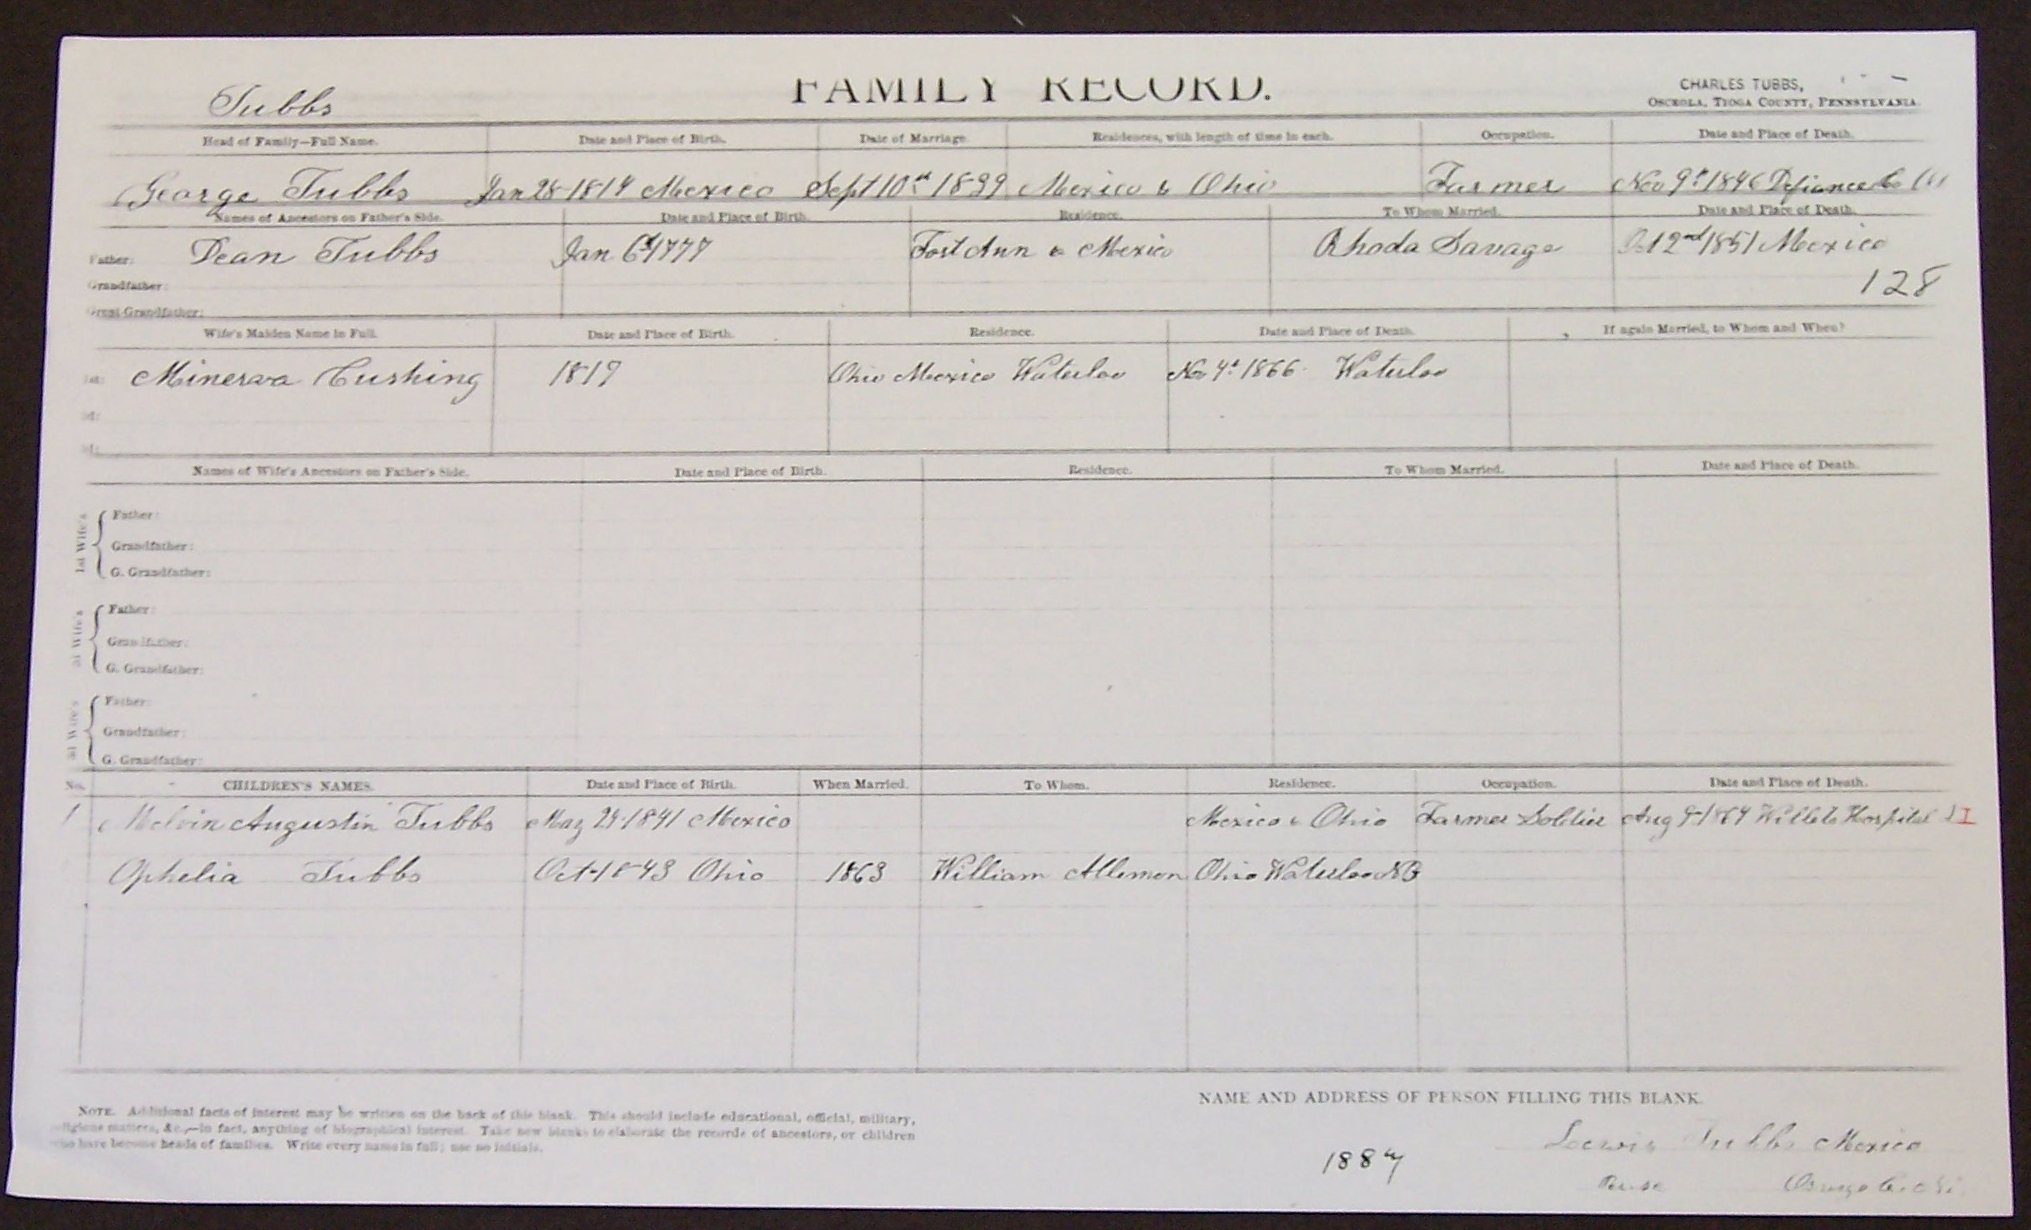 Tubbs FAMILY RECORD. CHARLES TUBBS,
OSCEOLA, TIOGA COUNTY, PENNSYLVANIA.
Head of Family—Full Name. Date and Place of Birth. Date of Marriage. Residences, with length of time in each. Occupation. Date and Place of Death.
George Tubbs Jan 28 1814 Mexico Sept 10th 1839 Mexico & Ohio Farmer Nov 9th 1846 Defiance Co
Names of Ancestors on Father's Side. Date and Place of Birth. Residence. To Whom Married. Date and Place of Death.
Father: Dean Tubbs Jan 6th 1777 Fort Ann & Mexico Rhoda Savage 12nd 1851 Mexico
Grandfather: 128
Great Grandfather:
Wife's Maiden Name in Full. Date and Place of Birth. Residence. Date and Place of Death. If again Married, to Whom and When?
1st: Minerva Cushing 1819 Ohio Mexico Waterloo Nov 4th 1866. Waterloo
2d:
3d:
Names of Wife's Ancestors on Father's Side. Date and Place of Birth. Residence. To Whom Married. Date and Place of Death.
1st Wife's
Father:
Grandfather:
G. Grandfather:
2d Wife's
Father:
Grandfather:
G. Grandfather:
3d Wife's
Father:
Grandfather:
G. Grandfather:
No. CHILDREN'S NAMES. Date and Place of Birth. When Married. To Whom. Residence. Occupation. Date and Place of Death.
1 Melvin Augustin Tubbs May 24 1841 Mexico Mexico & Ohio Farmer Soldier Aug 9 1864 Hospital
Ophelia Tubbs Oct 1843 Ohio 1863 William Allemon Ohio Waterloo
NAME AND ADDRESS OF PERSON FILLING THIS BLANK.
NOTE. Additional facts of interest may be written on the back of this blank. This should include educational, official, military,
religious matters, &c.,—in fact, anything of biographical interest. Take new blanks to elaborate the records of ancestors, or children
who have become heads of families. Write every name in full; use no initials.
Lewis Tubbs Mexico
1887 Oswego Co.